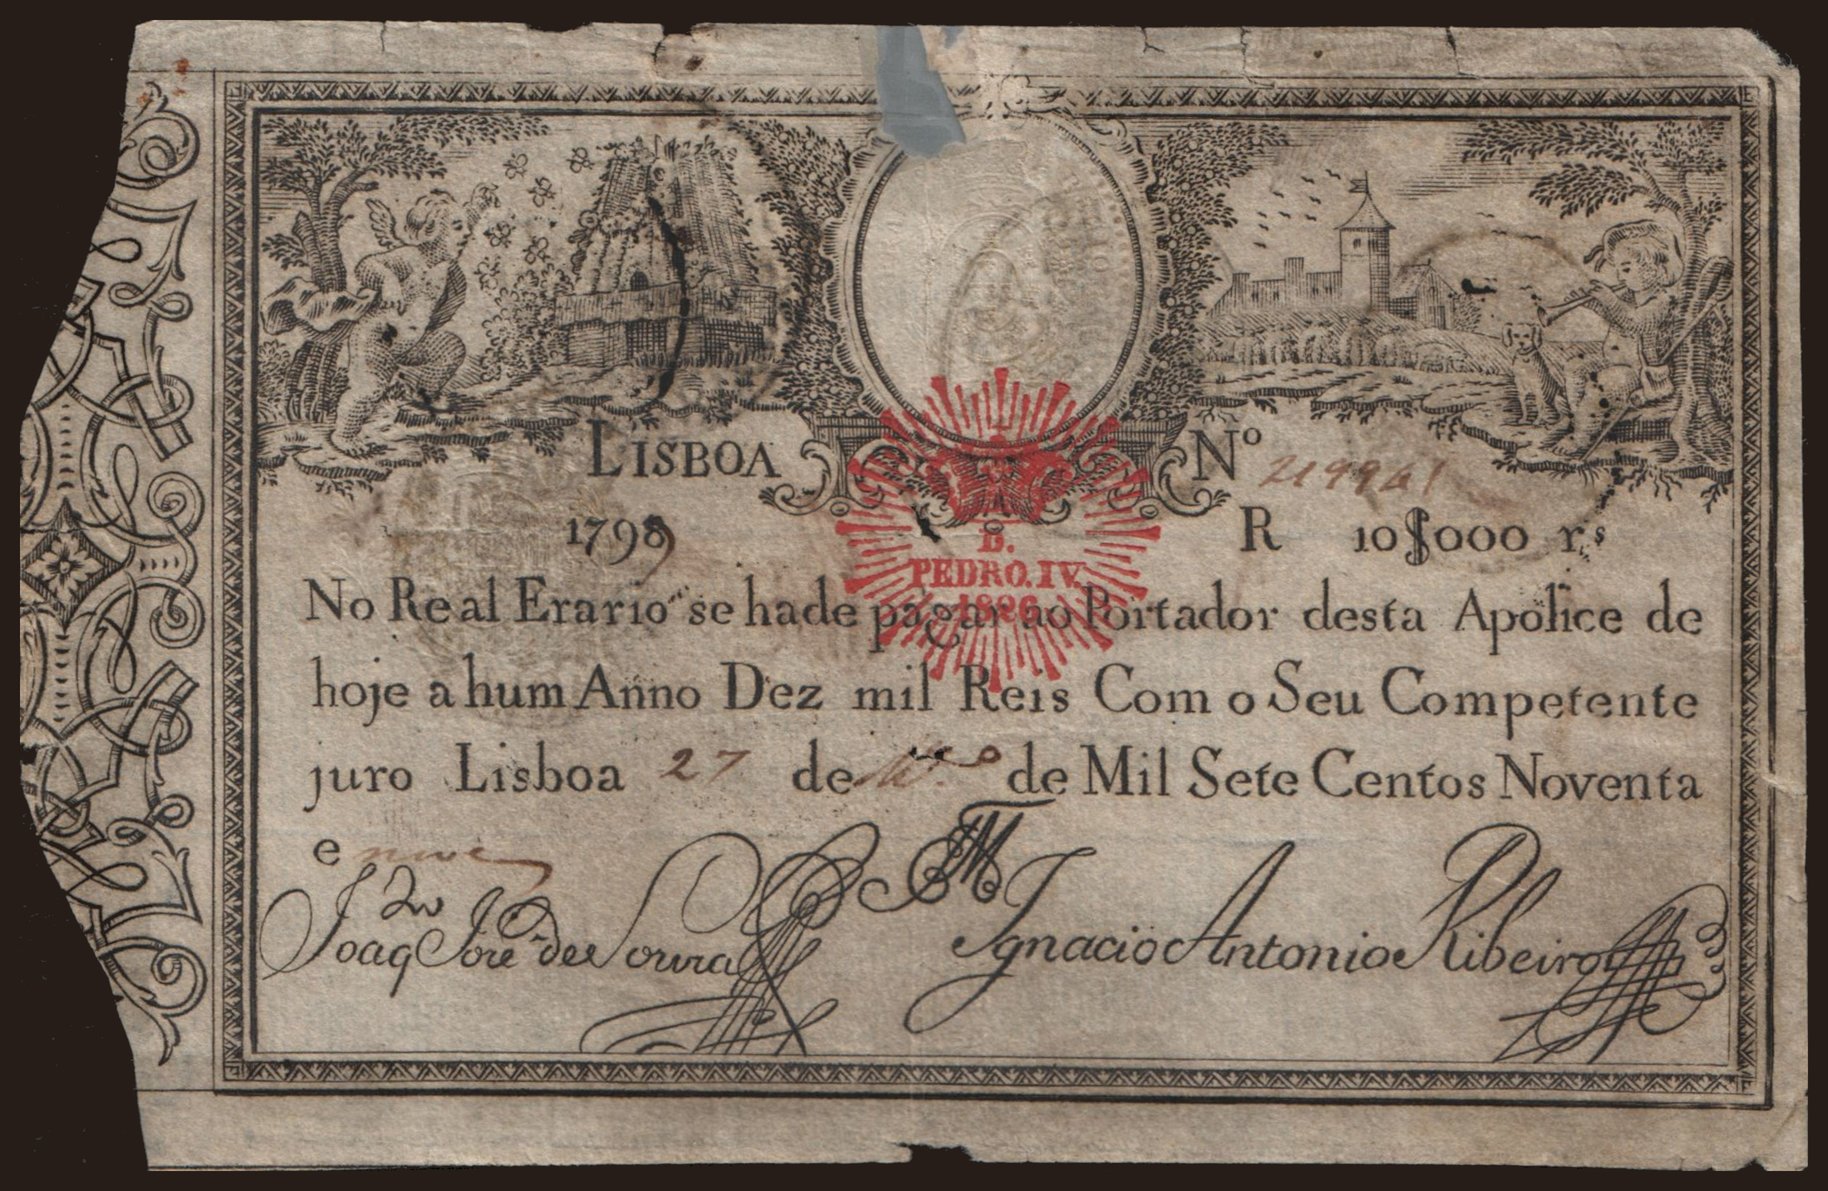 LISBOA
Nº 219961
1799
R 10$000 r.s
D.
PEDRO.IV.
1826
No Real Erario se hade pagar ao Portador desta Apolice de
hoje a hum Anno Dez mil Reis Com o Seu Competente
juro Lisboa 27 de M.ço de Mil Sete Centos Noventa
e nove
Joaq José de Souza
Ignacio Antonio Ribeiro